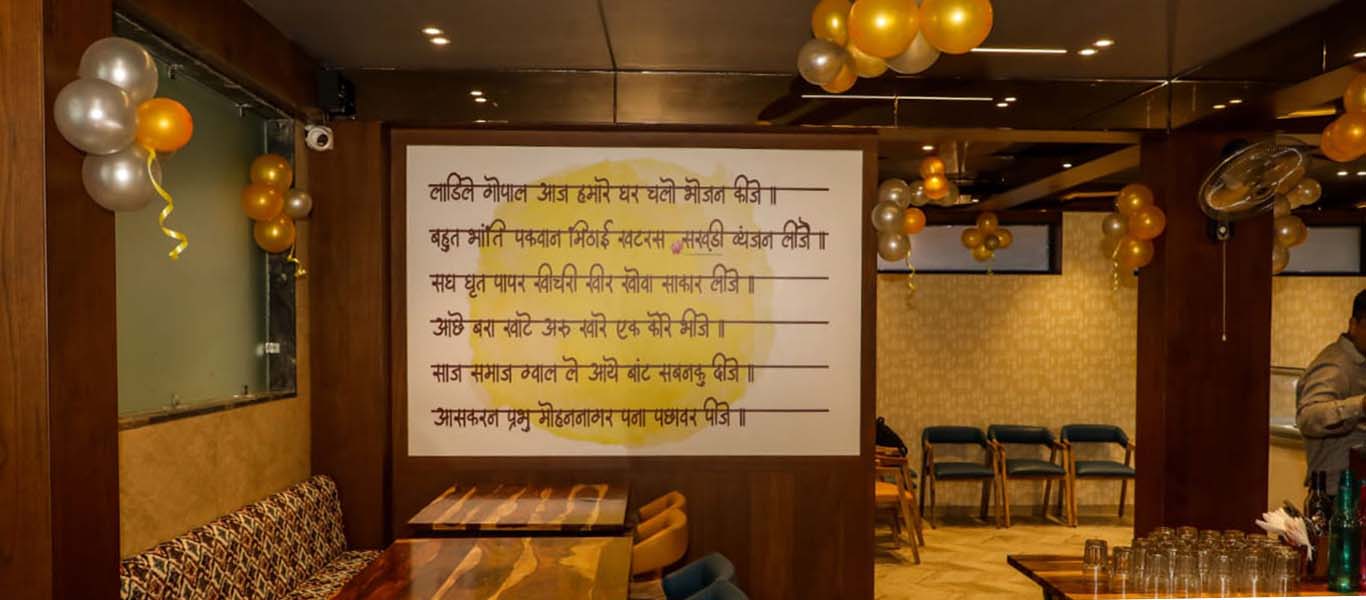 लाडिले गोपाल आज हमारे घर चलो भोजन कीजे ॥
बहुत भांति पकवान मिठाई खटरस सखडी व्यंजन लीजै ॥
सघ घृत पापर खीचरी खीर खोवा साकार लीजे ॥
आछे बरा खाटे अरु खारे एक कौरे भीजे ॥
साज समाज ग्वाल ले आये बांट सबनकु दीजे ॥
आसकरन प्रभु मोहननागर पना पछावर पीजे ॥